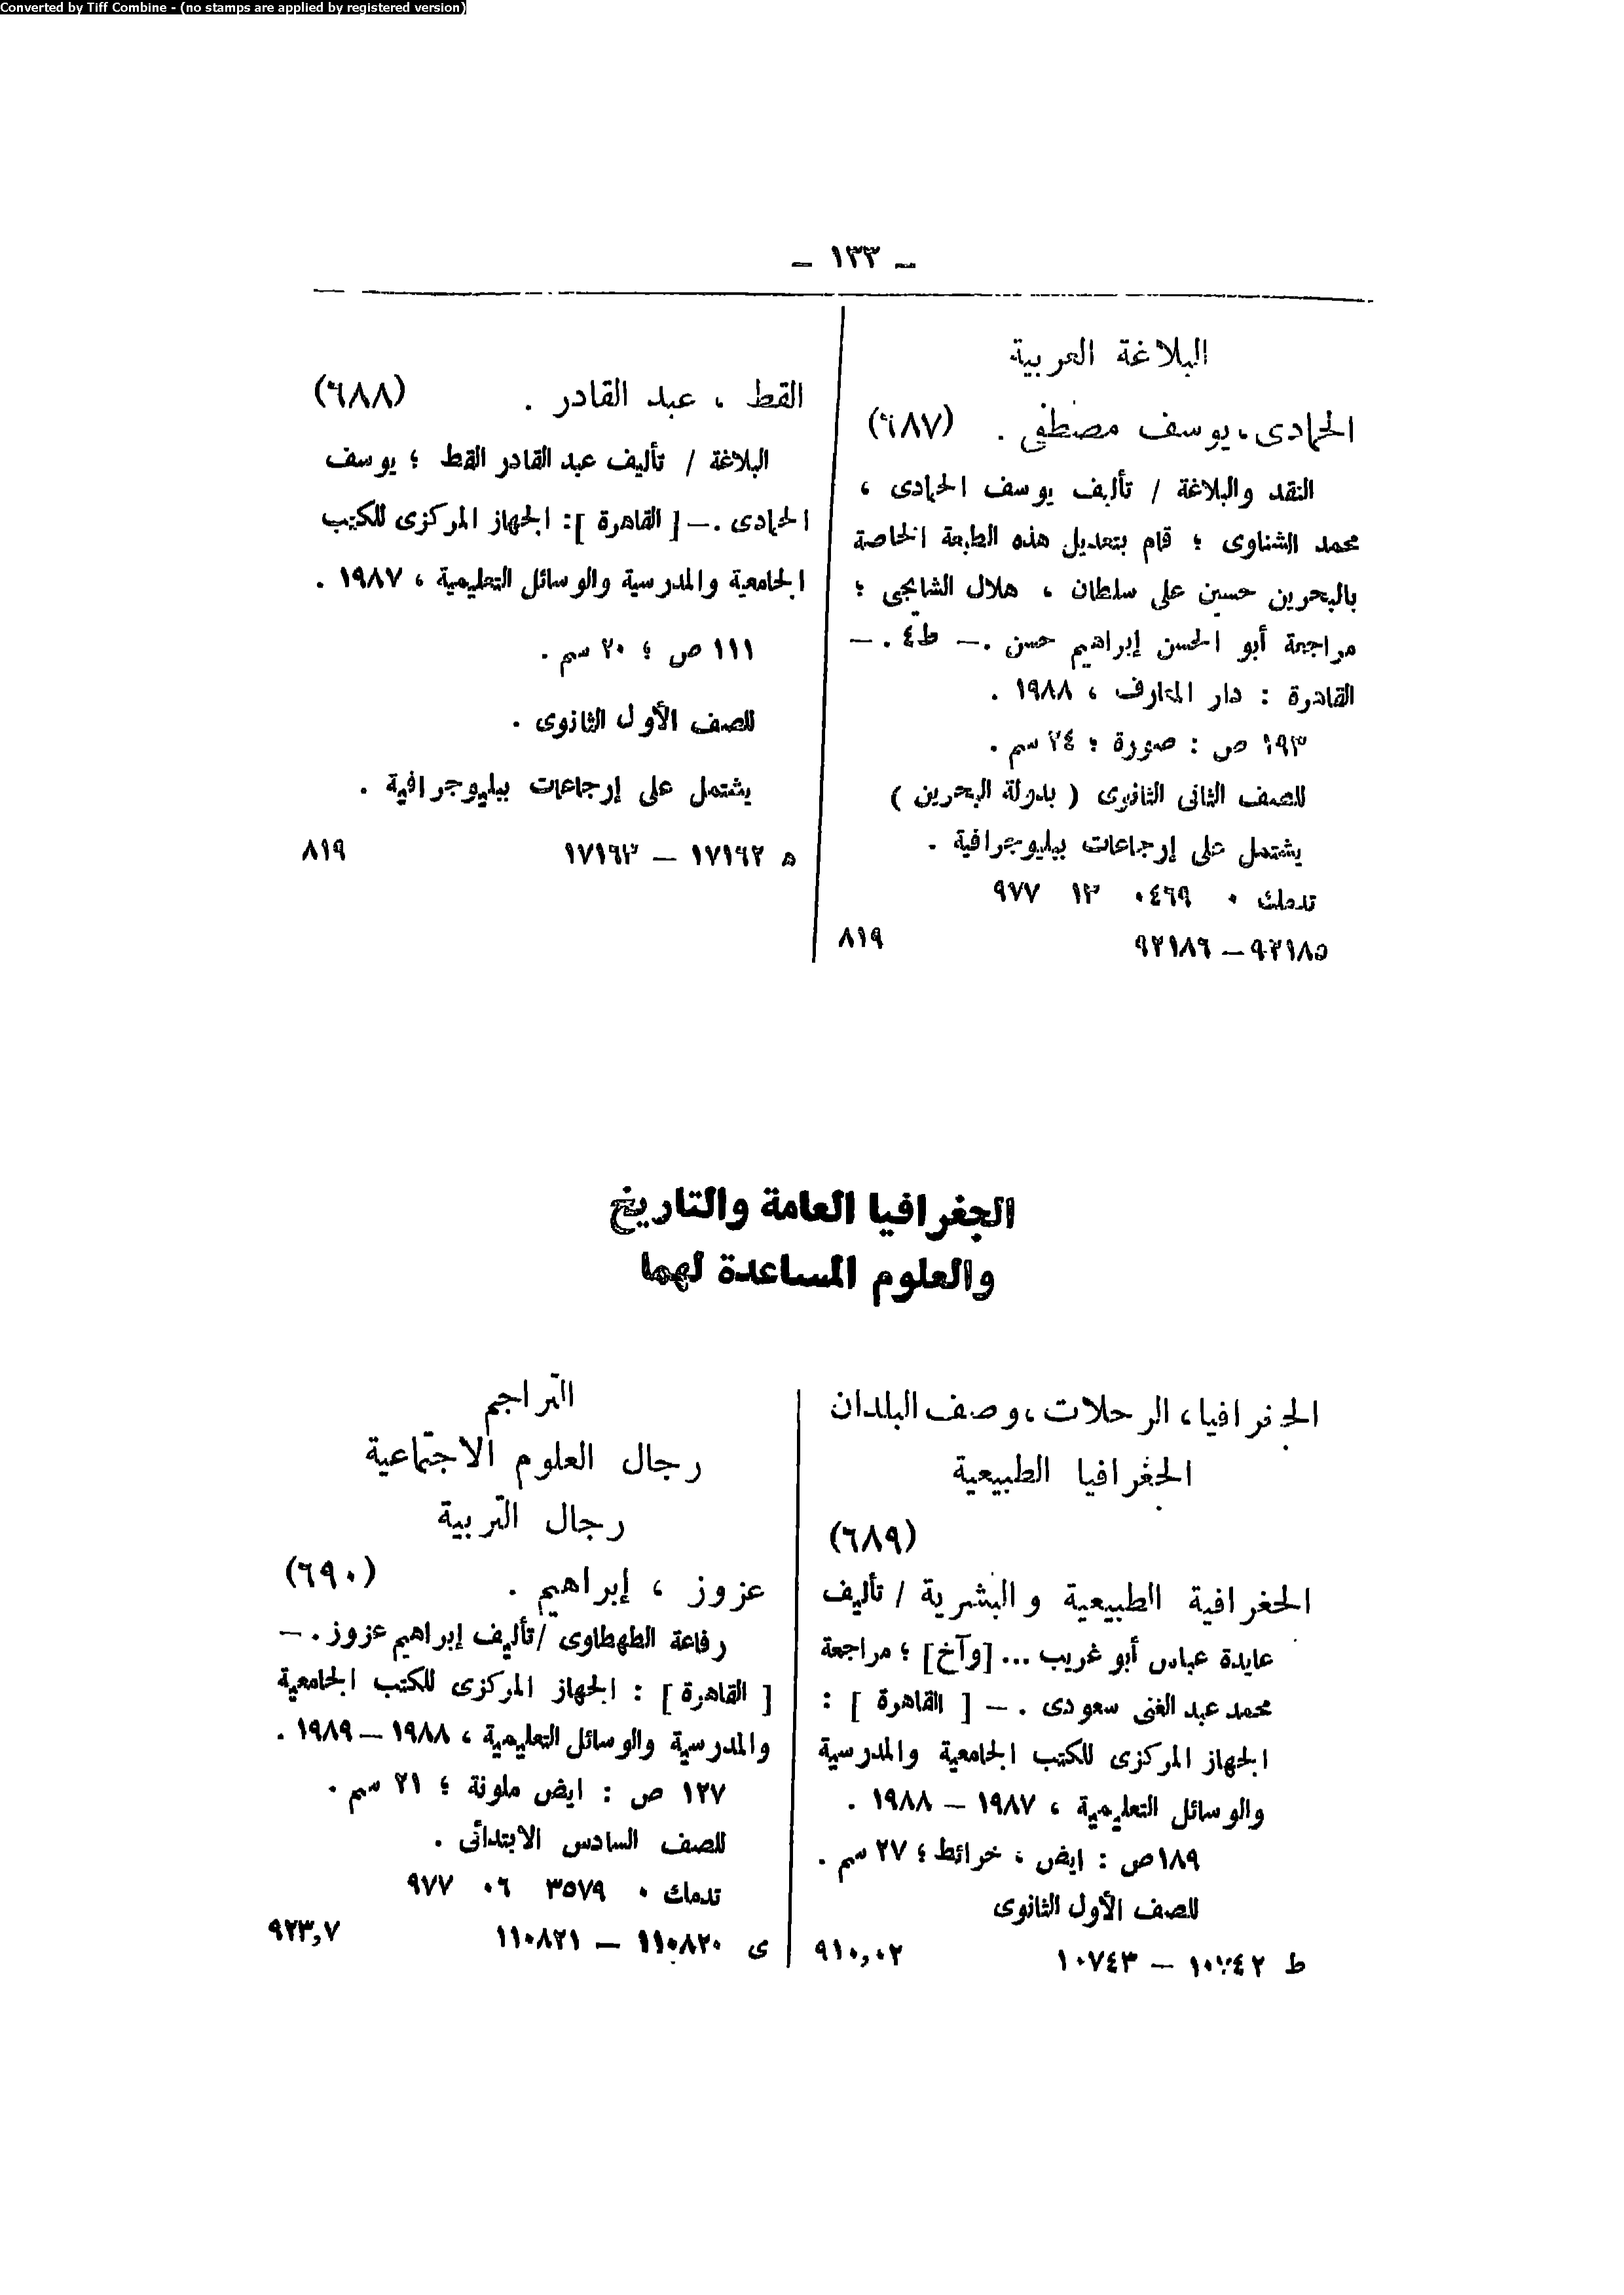 Converted by Tiff Combine - (no stamps are applied by registered version)
– ١٣٣ –
البلاغة العربية
الحمادى، يوسف مصطفى . (٦٨٧)
النقد والبلاغة / تأليف يوسف الحمادى ،
محمد الشناوى ؛ قام بتعديل هذه الطبعة الخاصة
بالبحرين حسين على سلطان ، هلال الشايجى ؛
مراجعة أبو الحسن إبراهيم حسن .– ط٤ . –
القاهرة : دار المعارف ، ١٩٨٨ .
١٩٣ ص : صورة ؛ ٢٤ سم .
للصف الثانى الثانوى ( بدولة البحرين )
يشتمل على إرجاعات ببليوجرافية .
تدمك ٠ ٠٤٦٩ ١٢ ٩٧٧
٩٢١٨٥ – ٩٢١٨٦ ٨١٩
القط ، عبد القادر . (٦٨٨)
البلاغة / تأليف عبد القادر القط ؛ يوسف
الحمادى .– [ القاهرة ]: الجهاز المركزى للكتب
الجامعية والمدرسية والوسائل التعليمية ، ١٩٨٧ .
١١١ ص ؛ ٢٠ سم .
للصف الأول الثانوى .
يشتمل على إرجاعات ببليوجرافية .
ه ١٧١٦٢ – ١٧١٦٣ ٨١٩
الجغرافيا العامة والتاريخ
والعلوم المساعدة لهما
الجغرافيا، الرحلات، وصف البلدان
الجغرافيا الطبيعية
(٦٨٩)
الجغرافية الطبيعية والبشرية / تأليف
عايدة عباس أبو غريب ... [وآخ] ؛ مراجعة
محمد عبد الغنى سعودى . – [ القاهرة ] :
الجهاز المركزى للكتب الجامعية والمدرسية
والوسائل التعليمية ، ١٩٨٧ – ١٩٨٨ .
١٨٩ص : ايض ، خرائط ؛ ٢٧ سم .
للصف الأول الثانوى
ط ١٠٧٤٢ – ١٠٧٤٣ ٩١٠,٠٢
التراجم
رجال العلوم الاجتماعية
رجال التربية
عزوز ، إبراهيم . (٦٩٠)
رفاعة الطهطاوى /تأليف إبراهيم عزوز. –
[ القاهرة ] : الجهاز المركزى للكتب الجامعية
والمدرسية والوسائل التعليمية ، ١٩٨٨ – ١٩٨٩ .
١٢٧ ص : ايض ملونة ؛ ٢١ سم .
للصف السادس الابتدائى .
تدمك ٠ ٣٥٧٩ ٠٦ ٩٧٧
ى ١١٠٨٢٠ – ١١٠٨٢١ ٩٢٣,٧